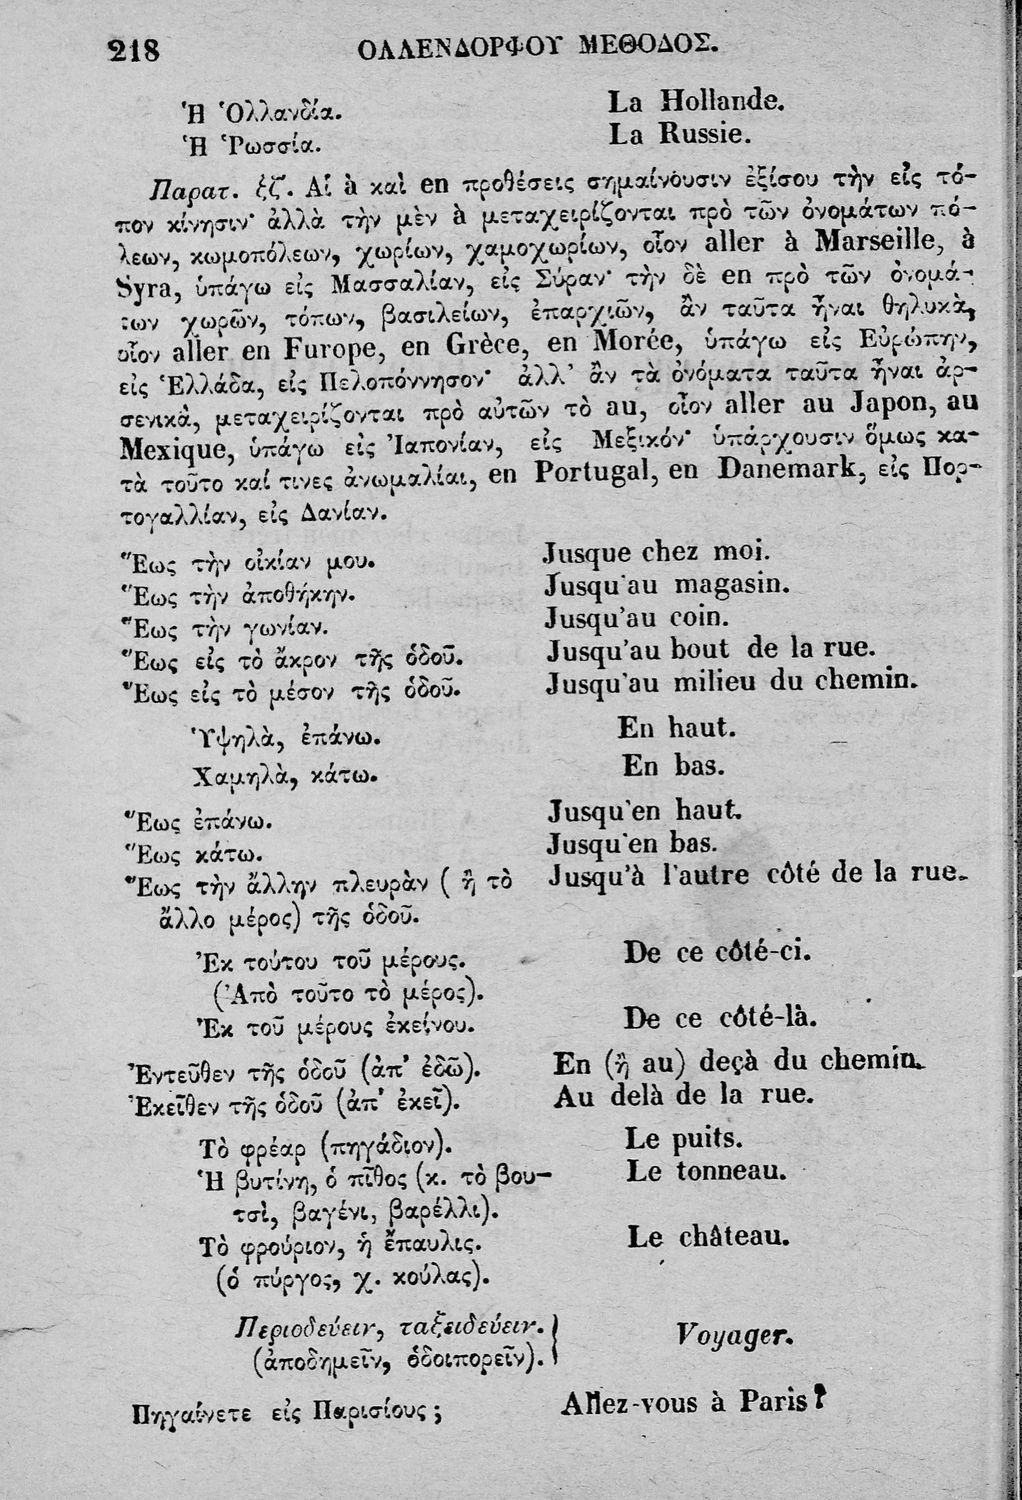 218 ΟΛΛΕΝΔΟΡΦΟΥ ΜΕΘΟΔΟΣ.
Ἡ Ὁλλανδία. La Hollande.
Ἡ Ῥωσσία. La Russie.
Παρατ. ξζʹ. Αἱ à καὶ en προθέσεις σημαίνουσιν ἐξίσου τὴν εἰς τό-
πον κίνησιν· ἀλλὰ τὴν μὲν à μεταχειρίζονται πρὸ τῶν ὀνομάτων πό-
λεων, κωμοπόλεων, χωρίων, χαμοχωρίων, οἷον aller à Marseille, à
Syra, ὑπάγω εἰς Μασσαλίαν, εἰς Σύραν· τὴν δὲ en πρὸ τῶν ὀνομά-
των χωρῶν, τόπων, βασιλείων, ἐπαρχιῶν, ἂν ταῦτα ἦναι θηλυκὰ,
οἷον aller en Furope, en Grèce, en Morée, ὑπάγω εἰς Εὐρώπην,
εἰς Ἑλλάδα, εἰς Πελοπόννησον· ἀλλ’ ἂν τὰ ὀνόματα ταῦτα ἦναι ἀρ-
σενικὰ, μεταχειρίζονται πρὸ αὐτῶν τὸ au, οἷον aller au Japon, au
Mexique, ὑπάγω εἰς Ἰαπονίαν, εἰς Μεξικόν· ὑπάρχουσιν ὅμως κα-
τὰ τοῦτο καί τινες ἀνωμαλίαι, en Portugal, en Danemark, εἰς Πορ-
τογαλλίαν, εἰς Δανίαν.
Ἕως τὴν οἰκίαν μου. Jusque chez moi.
Ἕως τὴν ἀποθήκην. Jusqu'au magasin.
Ἕως τὴν γωνίαν. Jusqu'au coin.
Ἕως εἰς τὸ ἄκρον τῆς ὁδοῦ. Jusqu'au bout de la rue.
Ἕως εἰς τὸ μέσον τῆς ὁδοῦ. Jusqu'au milieu du chemin.
Ὑψηλὰ, ἐπάνω. En haut.
Χαμηλὰ, κάτω. En bas.
Ἕως ἐπάνω. Jusqu'en haut.
Ἕως κάτω. Jusqu'en bas.
Ἕως τὴν ἄλλην πλευρὰν ( ἢ τὸ Jusqu'à l'autre côté de la rue.
ἄλλο μέρος) τῆς ὁδοῦ.
Ἐκ τούτου τοῦ μέρους. De ce côté-ci.
(Ἀπὸ τοῦτο τὸ μέρος).
Ἐκ τοῦ μέρους ἐκείνου. De ce côté-là.
Ἐντεῦθεν τῆς ὁδοῦ (ἀπ’ ἐδῶ). En (ἢ au) deçà du chemin.
Ἐκεῖθεν τῆς ὁδοῦ (ἀπ’ ἐκεῖ). Au delà de la rue.
Τὸ φρέαρ (πηγάδιον). Le puits.
Ἡ βυτίνη, ὁ πῖθος (κ. τὸ βου- Le tonneau.
τσὶ, βαγένι, βαρέλλι).
Τὸ φρούριον, ἡ ἔπαυλις. Le château.
(ὁ πύργος, χ. κούλας).
Περιοδεύειν, ταξειδεύειν. } Voyager.
(ἀποδημεῖν, ὁδοιπορεῖν).
Πηγαίνετε εἰς Παρισίους ; Allez-vous à Paris ?